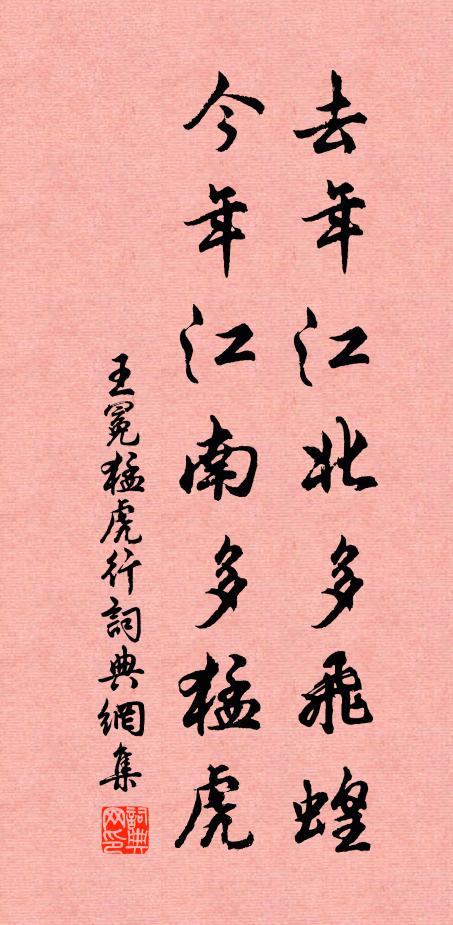 去年江北多飛蝗
今年江南多猛虎
王冕猛虎行詞典網集
詞典网印